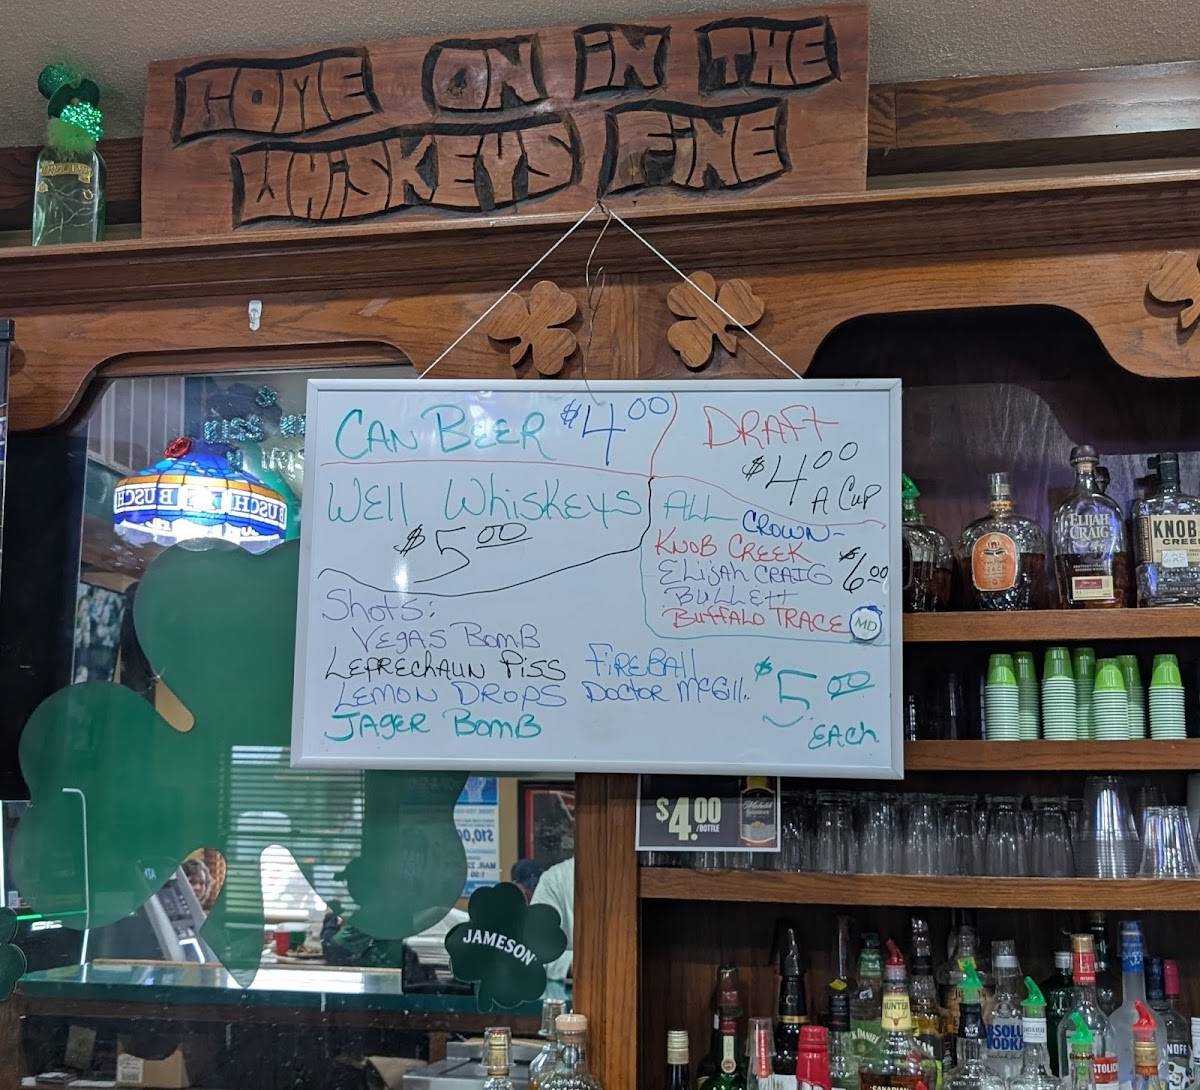 COME ON IN THE
WHISKEYS FINE
CAN BEER $4.00
DRAFT
$4.00
A CUP
WEll WHISKEYS
$5.00
ALL CROWN-
KNOB CREEK
ELIJAH CRAIG
BULLEtt
BUFFALO TRACE
$6.00
MD
SHOTS:
VEGAS BOMB
LEPRECHAUN PISS
LEMON DROPS
JAGER BOMB
FIREBAll
DOCTOR McGIll.
$5.00
EACH
BUSCH
BUSCH
$4.00
/BOTTLE
JAMESON
ELIJAH
CRAIG
KNOB
CREEK
ABSOLU
VODKA
STOLI